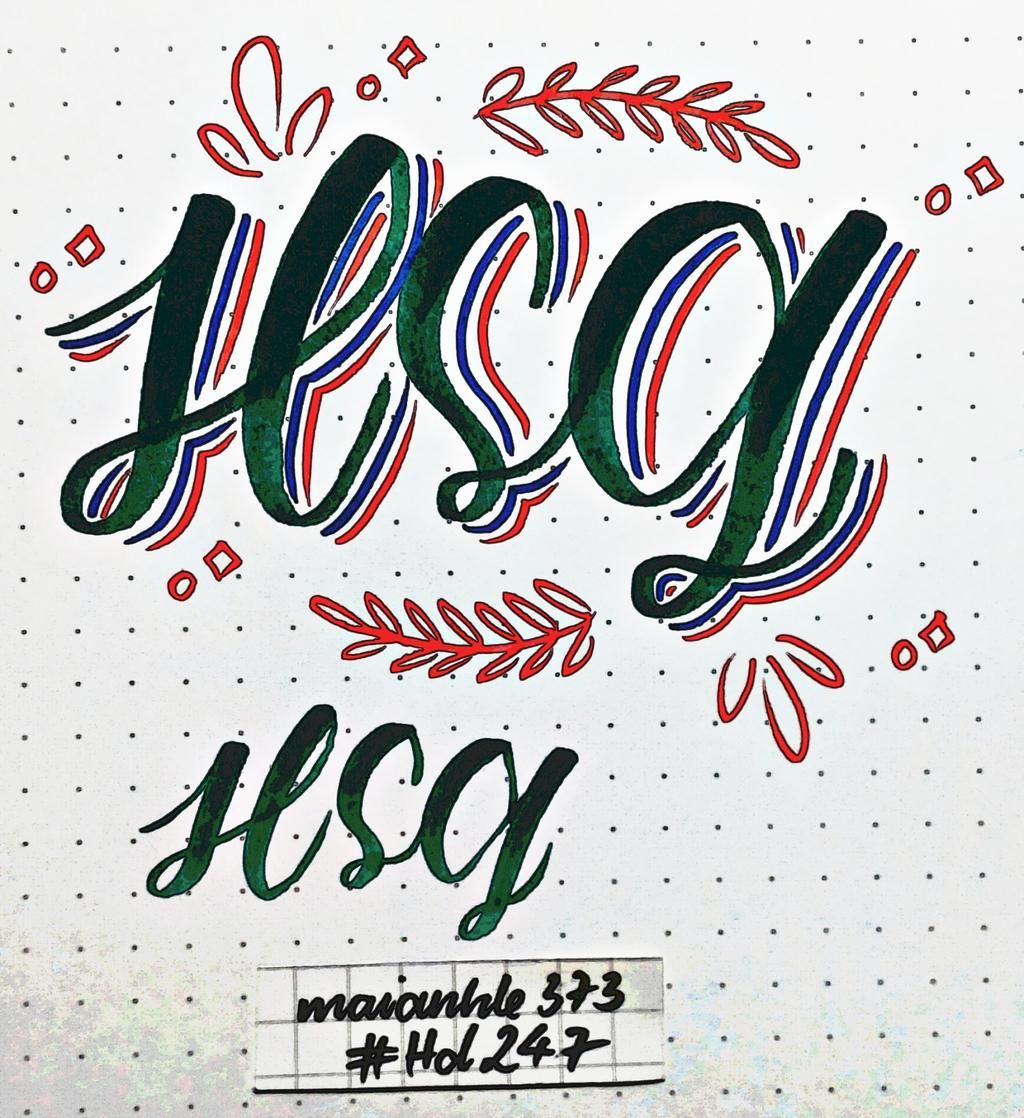 Hsg
Hsg
maianhle 373
#Hd 247